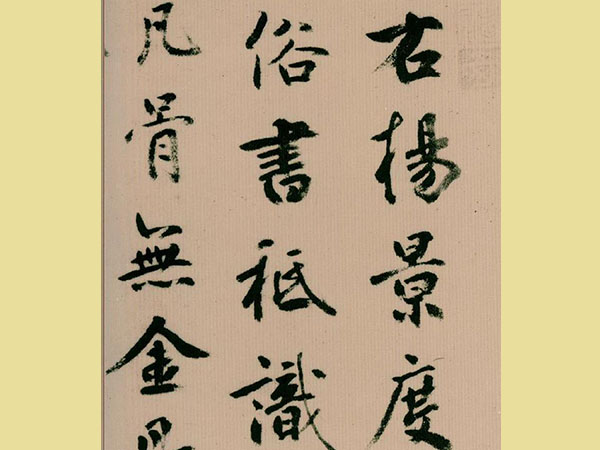 右楊景度
俗書祗識
凡骨無金